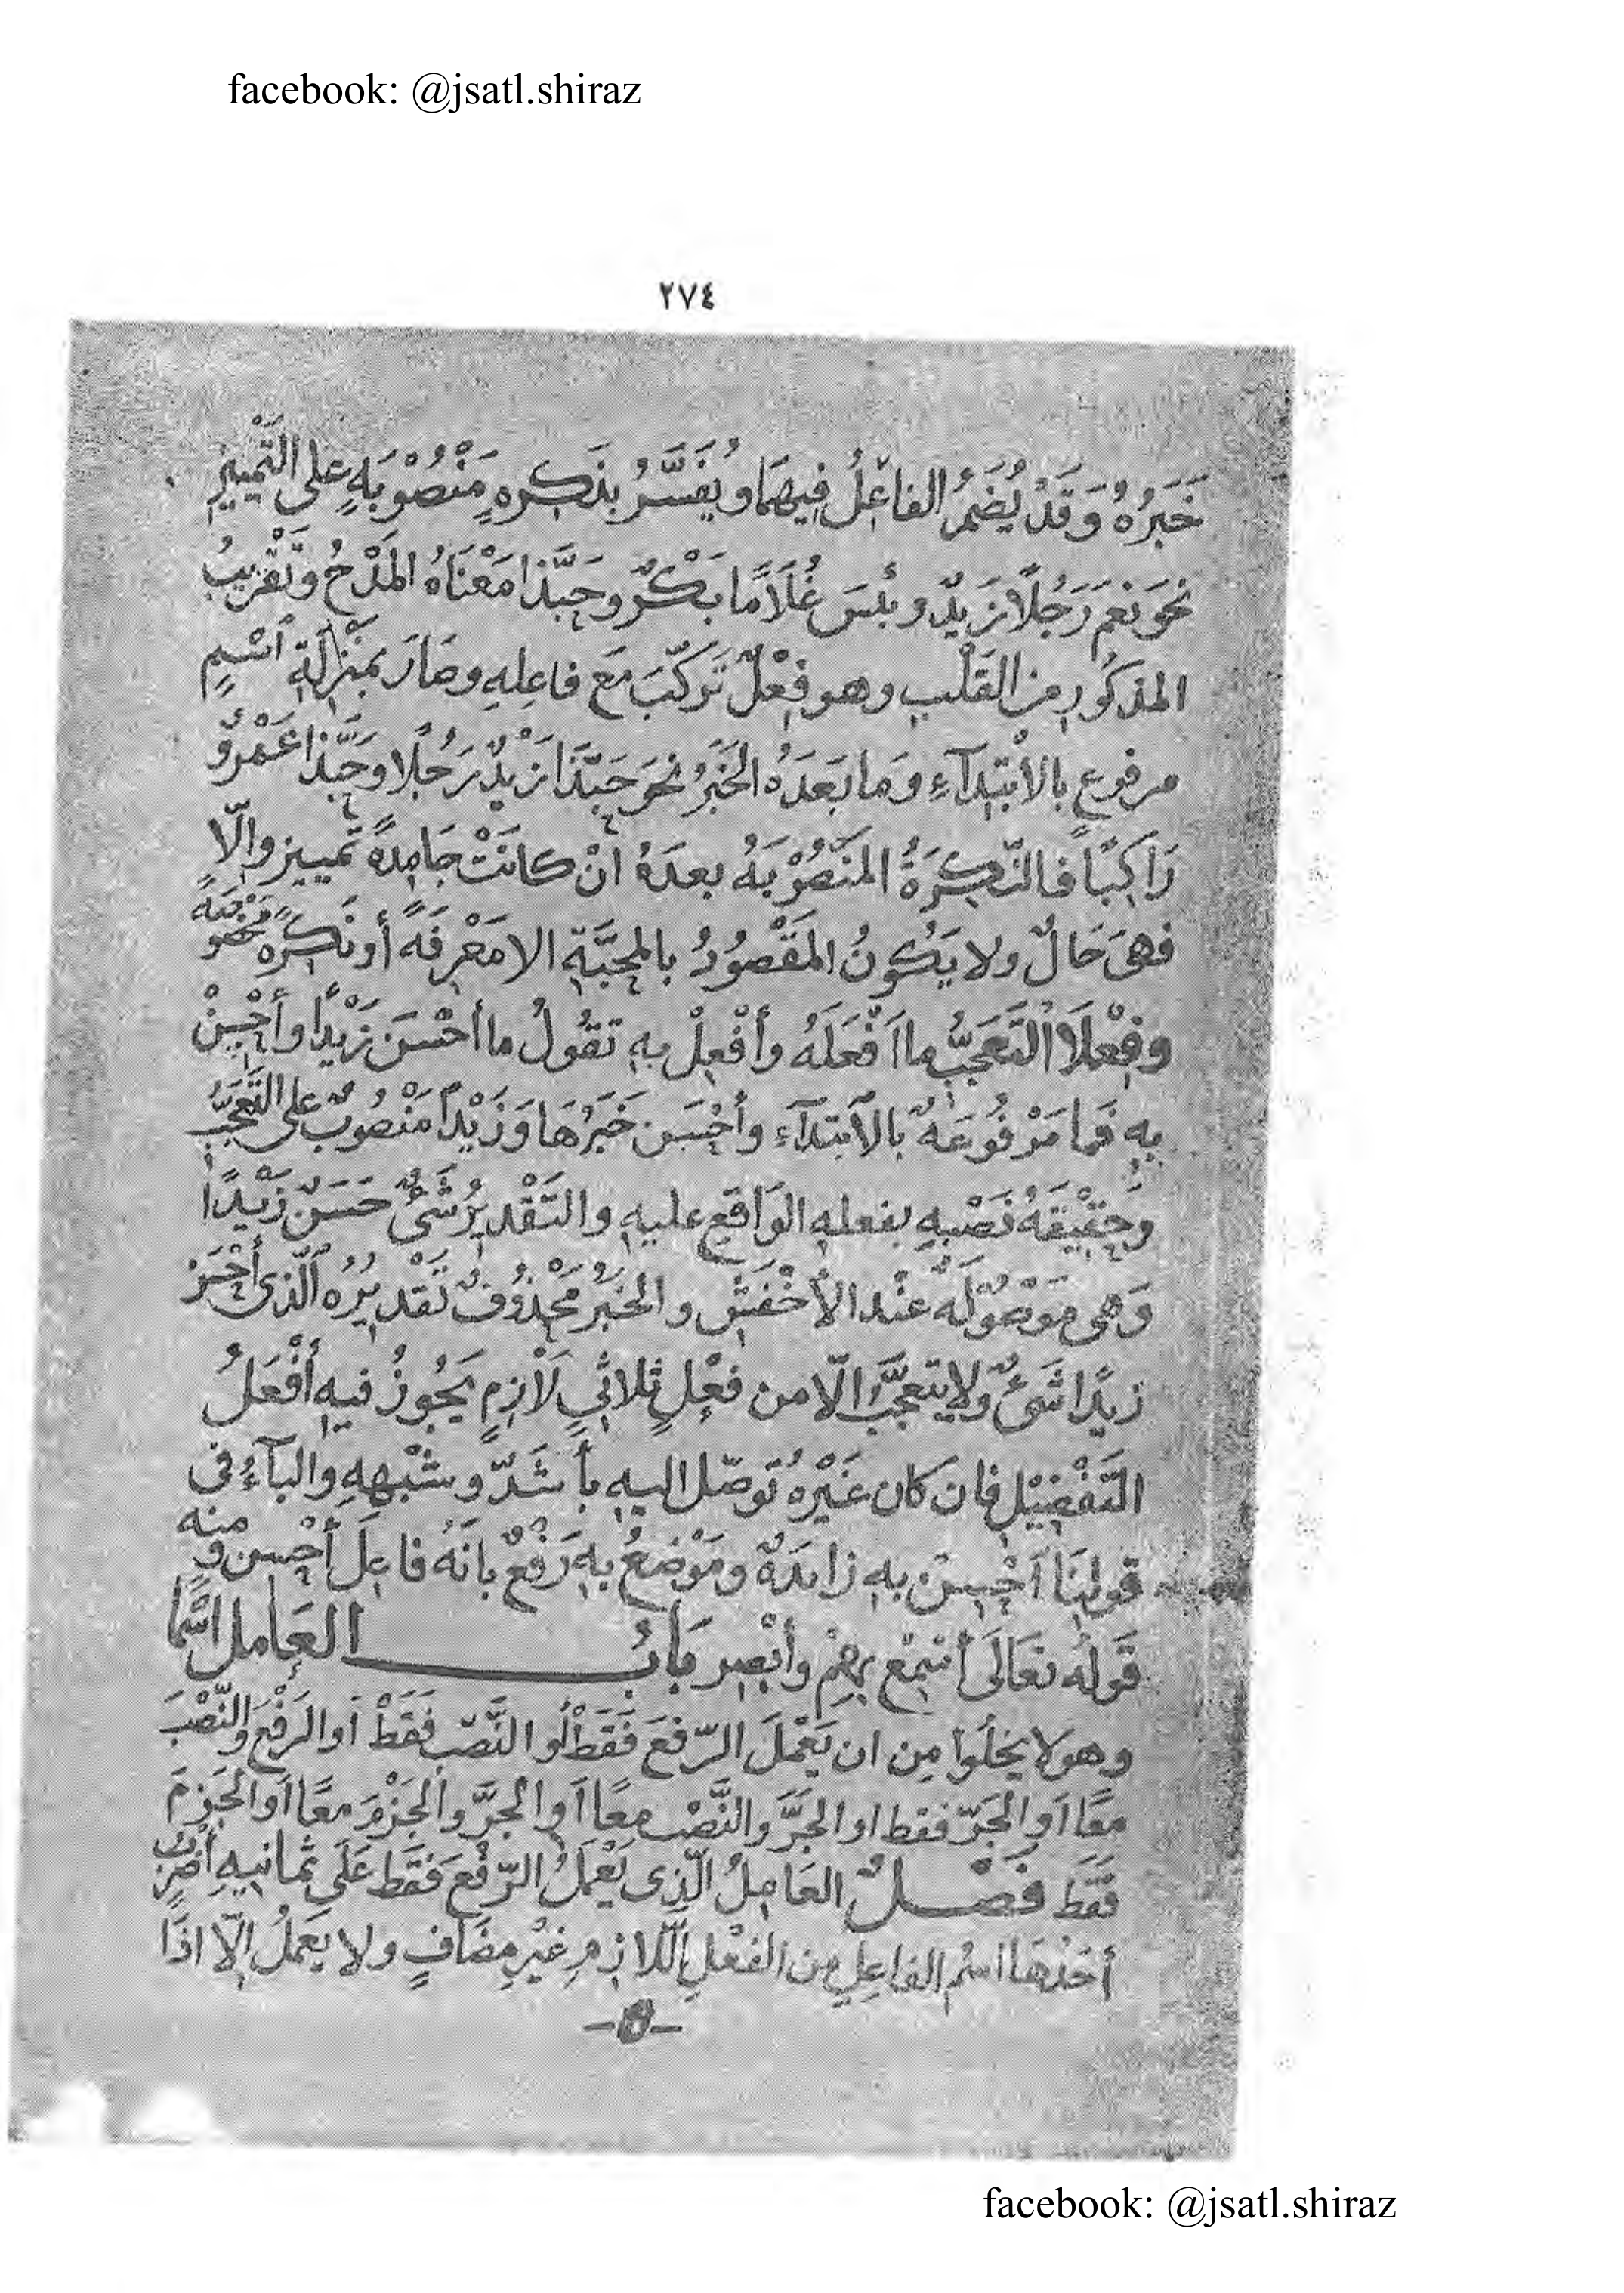 facebook: @jsatl.shiraz
٢٧٤
خَبَرُهُ وَقَدْ يُضْمَرُ الفاعِلُ فِيهمَا ويُفَسَّرُ بنَكِرهٍ مَنْصُوْبَهٍ على التَّمْييزِ
نحو نعمَ رَجُلًا زَيدٌ وبئسَ غُلَامًا بَكْرٌ وحَبَّذا مَعْنَاهُ المَدْحُ وتَقْرِيبُ
المذكُورِ من القَلْبِ وهو فِعْلٌ تَركّبَ مَعَ فاعِلِهِ وصَارَ بمَنْزِلَةِ اسْمٍ
مرفوع بالابْتِدَآءِ وَمَا بَعَدَهُ الخَبَرُ نحوَ حَبّذَا زَيْدٌ رَجُلًا وحَبَّذا عَمْرٌو
رَاكِبًا فالنّكِرَةُ المَنْصُوْبَهُ بعدَهُ انْ كانَتْ جَامِدةً تمييز والّا
فهىَ حَالٌ ولا يَكُونُ المَقْصُودُ بالمحَبَّةِ الا مَعْرِفَةً أو نَكِرَةً مَخْصُوصَةً
وفِعْلَا التَعَجُّبِ ما اَفْعَلَهُ وأَفْعِلْ بهِ تقُولُ ما أَحْسَنَ زَيْدًا وأَحْسِنْ
بهِ فَما مَرْفُوعَهٌ بالابتدَآءِ وأَحْسَن خَبَرُهَا وَزَيْدًا مَنْصُوبٌ على التَّعَجُّبِ
وَحَقِيْقَهُ نَصْبهِ بفعلهِ الوَاقعِ عليهِ والتَقْديرُ شَىْءٌ حَسَّنَ زَيْدًا
وَهى مَوْصُوْلَهٌ عنْد الأخْفَشِ والخبَرُ مَحْذُوْفٌ تَقْديرُهُ الّذى أَحْسَن
زيدًا شَىْءٌ ولا يتعجّبُ الّا من فعْلٍ ثلاثىٍ لَازِمٍ يَجُوزُ فيهِ أفْعَلُ
التَفْضِيْلِ فان كان غَيْرهُ تُوصّل اليهِ بأَشَدّ وشبْههِ والبآءُ فى
قولِنَا اَحْسِنْ بهِ زايدَةٌ ومَوْضعُ بهِ رَفْعٌ بانّهُ فاعِلَ أَحْسِن ومنه
قَولهُ تعَالَى أَسْمِعْ بِهِمْ وأَبْصِر بَابُ العَامل اسْمًا
وهو لا يخلُوا مِن ان يَعْمَلَ الرّفعَ فَقَطْ أو النَّصْبَ فَقَطْ أو الرَفْعَ والنّصْبَ
معًا اَو الجَرّ فقط او الجَرَّ والنَّصْبَ معًا اَو الجرَّ والجَزْمَ معًا اَو الجَزمَ
فَقَط فَصْلٌ العَامِلُ الّذِى يَعْمَلُ الرّفْعَ فَقَط عَلَى ثمانيهِ أضْرُبٍ
أحَدُهَا اسْمُ الفاعِلِ مِن الفعْلِ اللّازِمِ غيْرِ مضَافٍ ولا يعَملُ الّا اذَا
facebook: @jsatl.shiraz